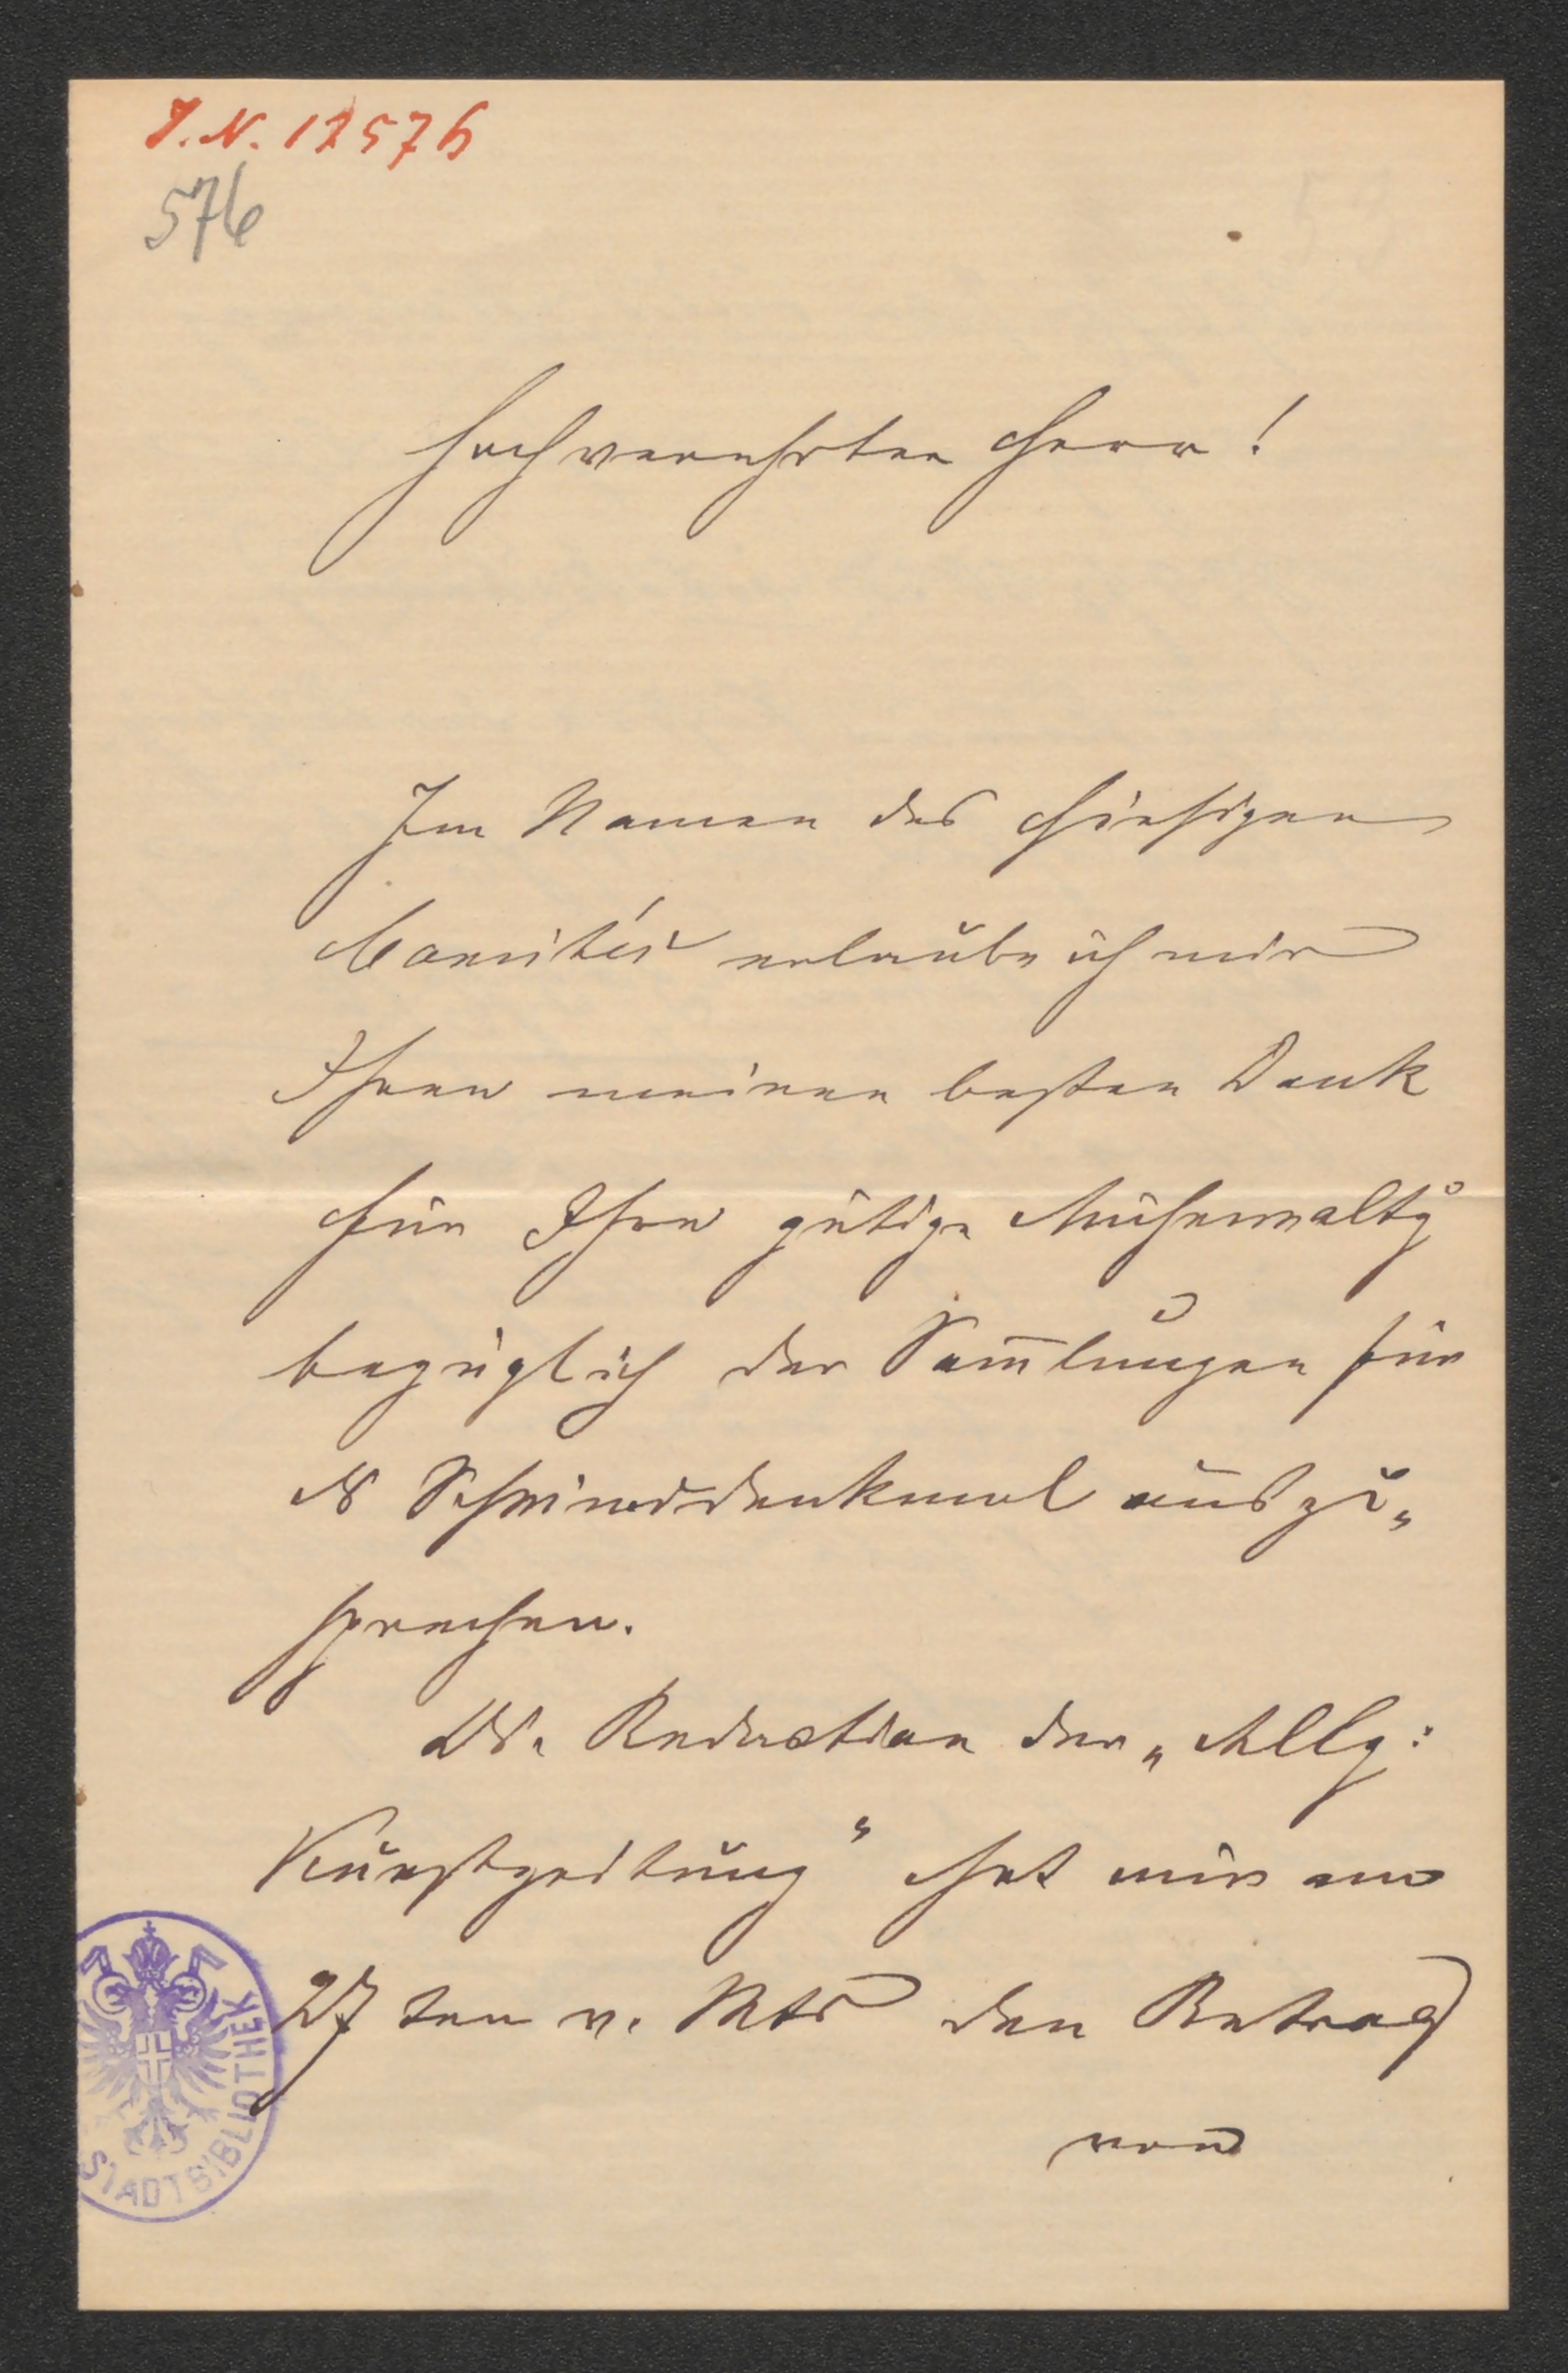 J.N. 12576
576
Hochverehrter Herr!
Im Namen des hiesigen
Comités erlaube ich mir
Ihnen meinen besten Dank
für Ihre gütige Mühewaltg
bezüglich der Sam̅lungen für
das Schwinddenkmal auszu„
sprechen.
Die Redaction der „Allg:
Kunstzeitung“ hat mir am
27ten v. Mts den Betrag
von
STADTBIBLIOTHEK